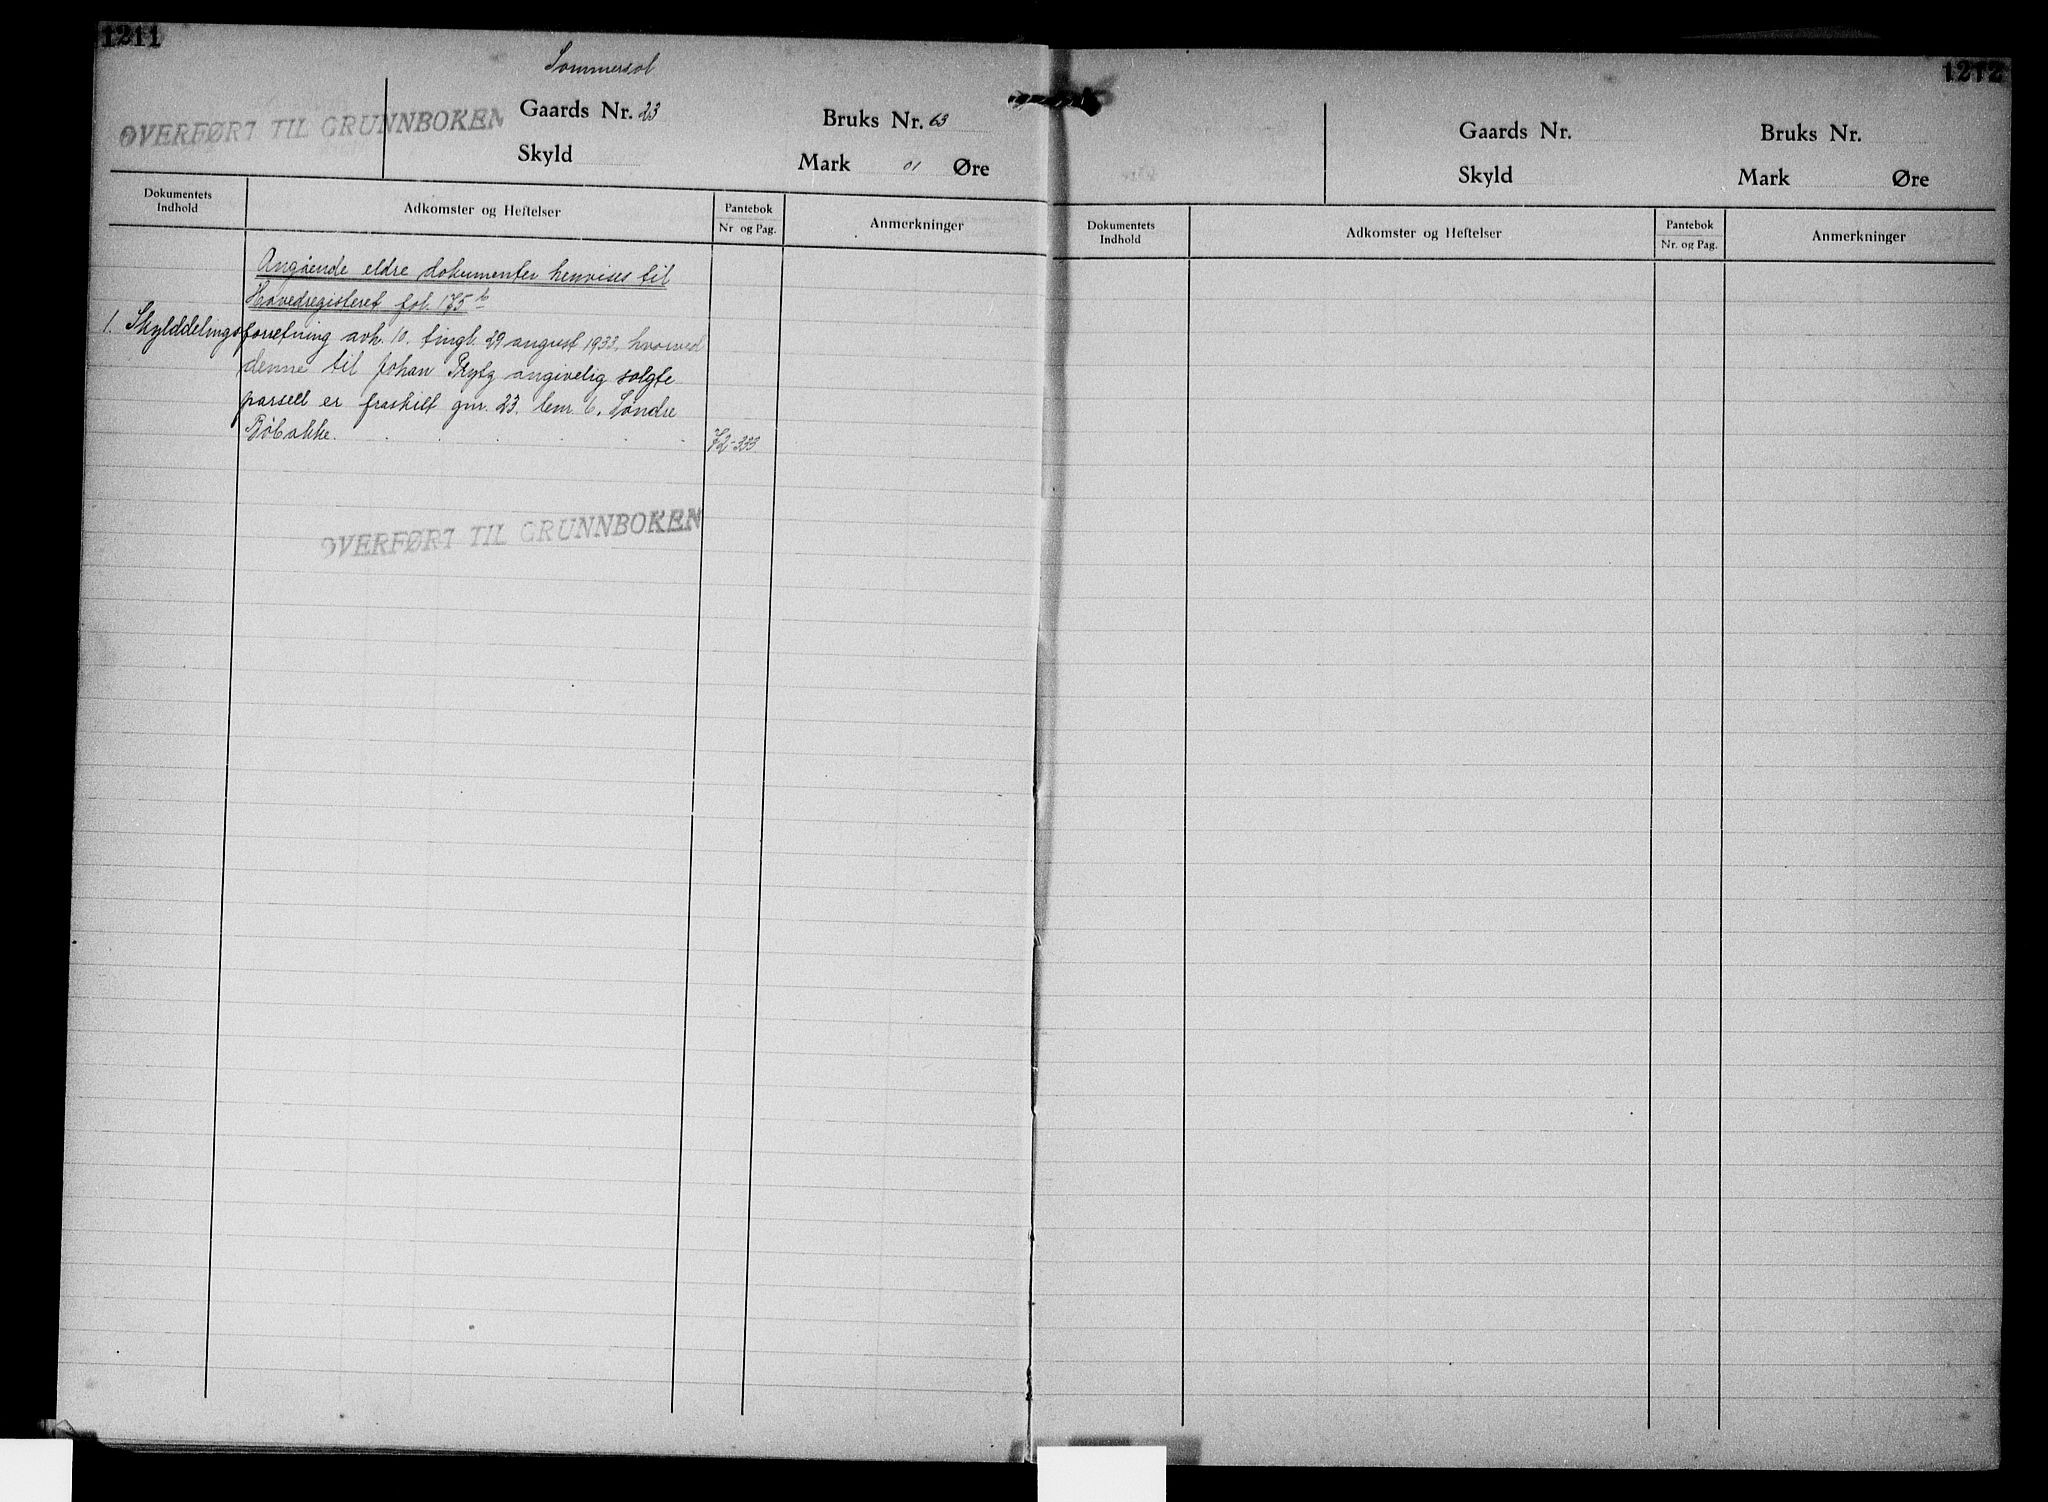 1211
Sommersol
OVERFØRT TIL GRUNNBOKEN
Gaards Nr. 23
Bruks Nr. 63
Skyld
Mark 01 Øre
Dokumentets Indhold
Adkomster og Heftelser
Pantebok
Nr og Pag.
Anmerkninger
Angående eldre dokumenter henvises til
Hovedregisteret fol. 175 b
1. Skylddelingsforretning avh. 10. tingl. 29 august 1933, hvorved
denne til Johan angivelig solgte
parsell er fraskilt gnr. 23. bnr. 6. Søndre
Böbakke. 72-333
OVERFØRT TIL GRUNNBOKEN
1212
Gaards Nr.
Bruks Nr.
Skyld
Mark Øre
Dokumentets Indhold
Adkomster og Heftelser
Pantebok
Nr. og Pag.
Anmerkninger